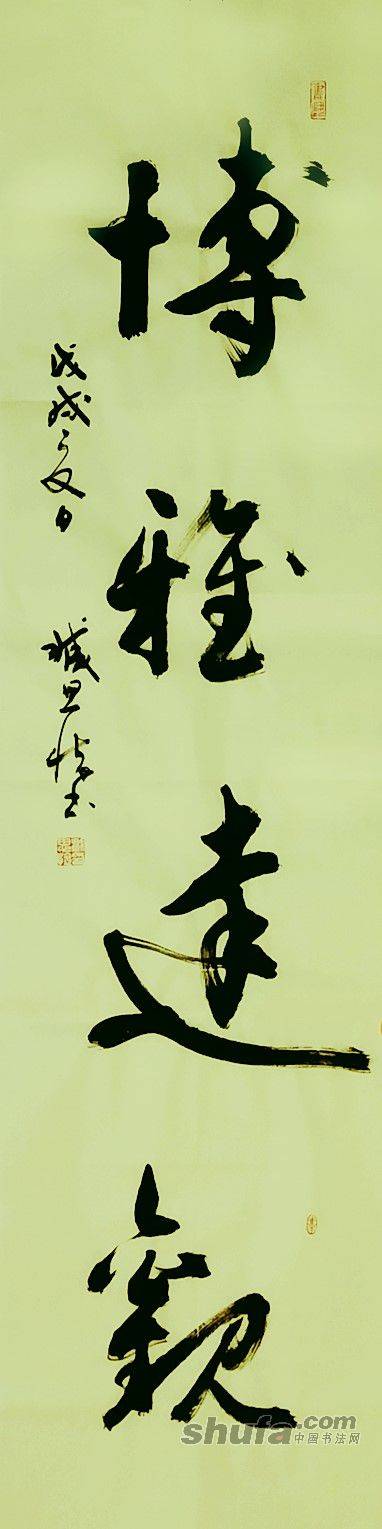 博雅達觀
戊戌之夏月
書
shufa.com
中国书法网